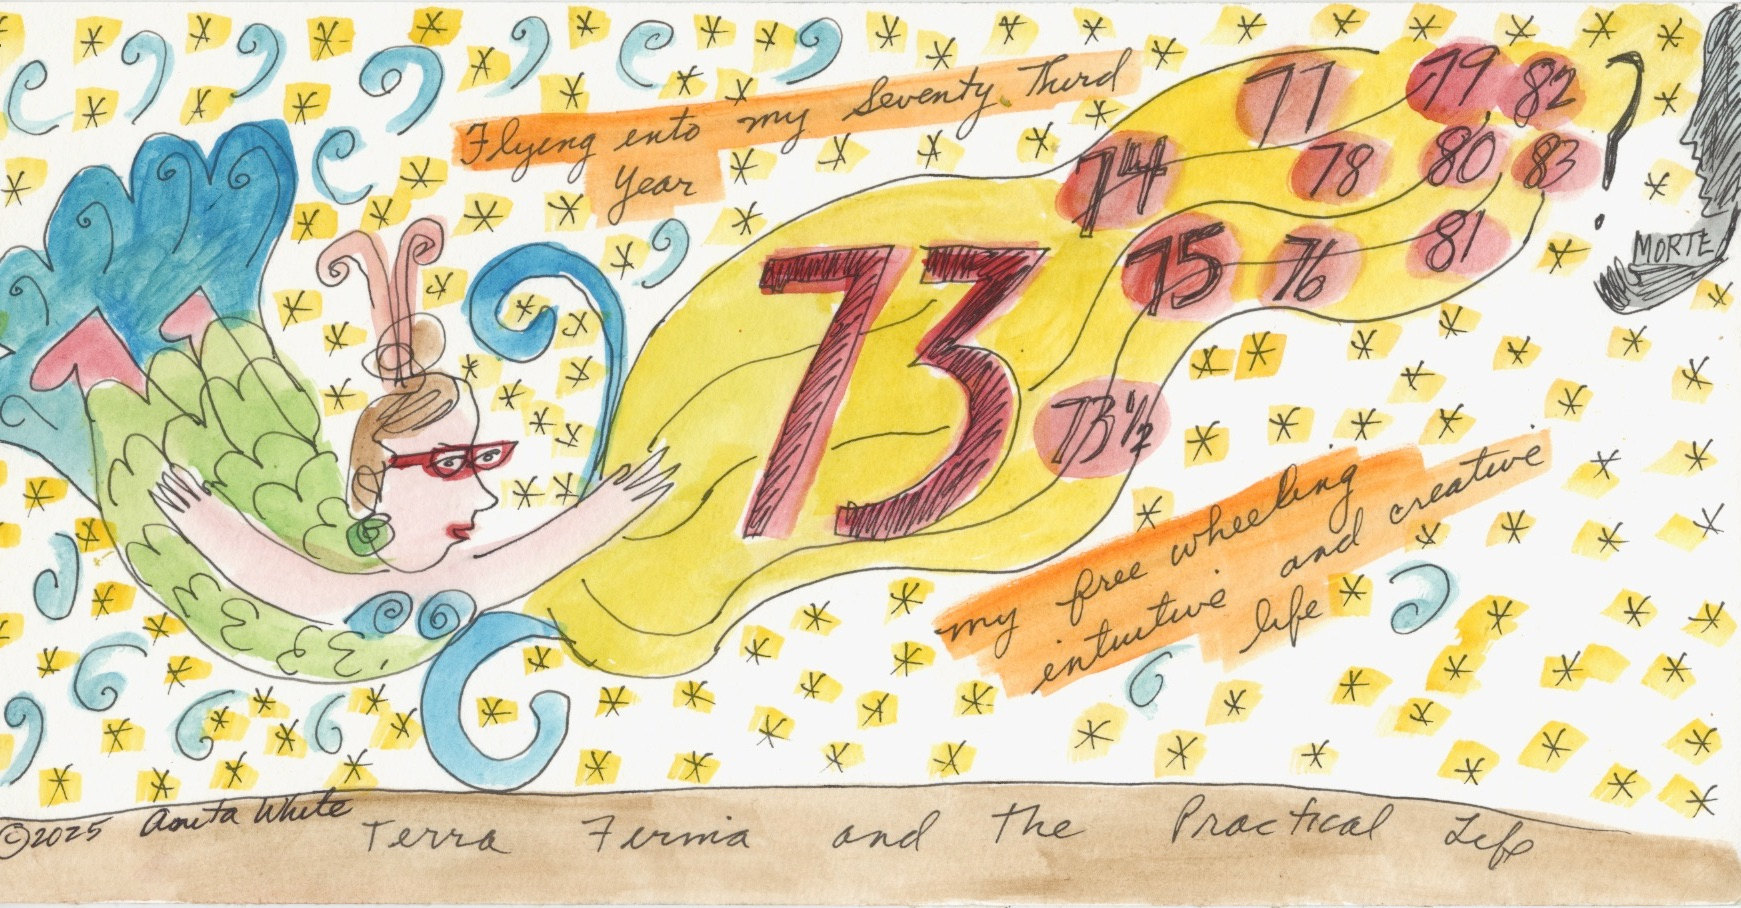 Flying into my Seventy Third
Year
77
79
82
?
74
78
80
83
73
75
76
81
MORTE
73 ½
my free wheeling
intuitive and creative
life
©2025 Anita White
Terra Firma and The Practical Life